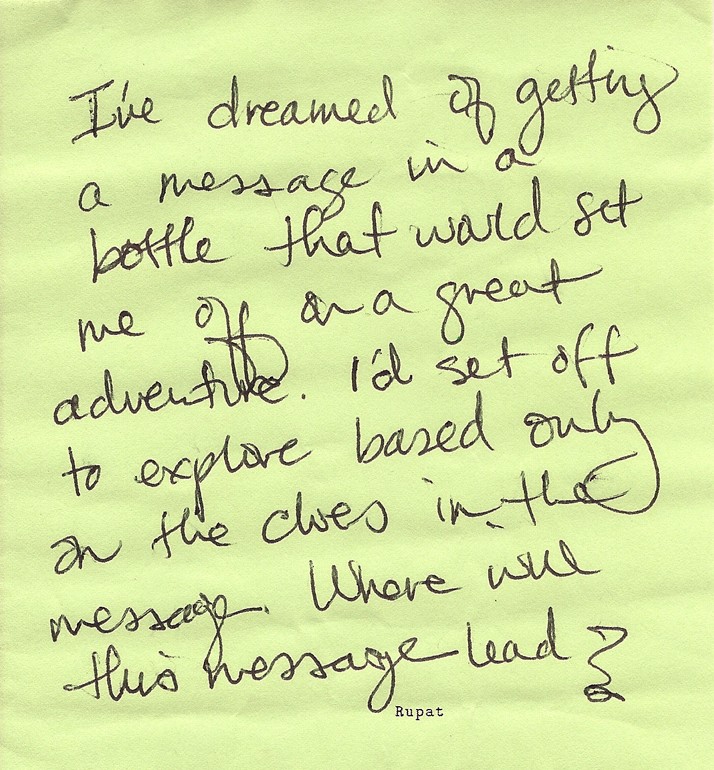 I've dreamed of getting
a message in a
bottle that would set
me off on a great
adventure. I'd set off
to explore based only
on the clues in the
message. Where will
this message lead?
Rupat